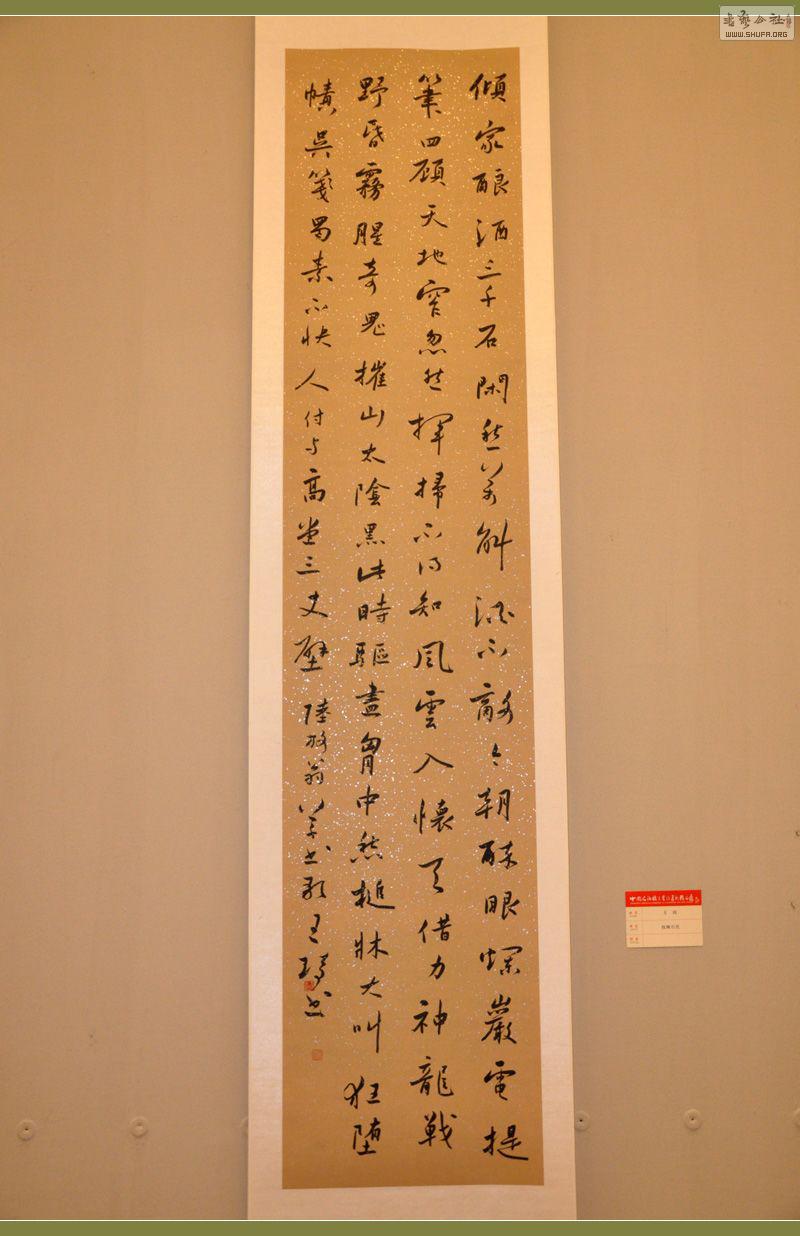 傾家酿酒三千石閑愁萬斛酒不敵今朝醉眼爛巖電提
筆四顧天地窄忽然揮掃不自知風雲入懷天借力神龍戰
野昏霧腥奇鬼摧山太陰黑此時驅盡胷中愁槌牀大叫狂堕
幘吳箋蜀素不快人付与高堂三丈壁 陸放翁草书歌 王书
WWW.SHUFA.ORG